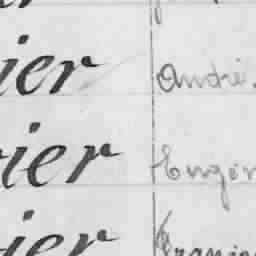 ier André.
rier Eugèn
ier Franço